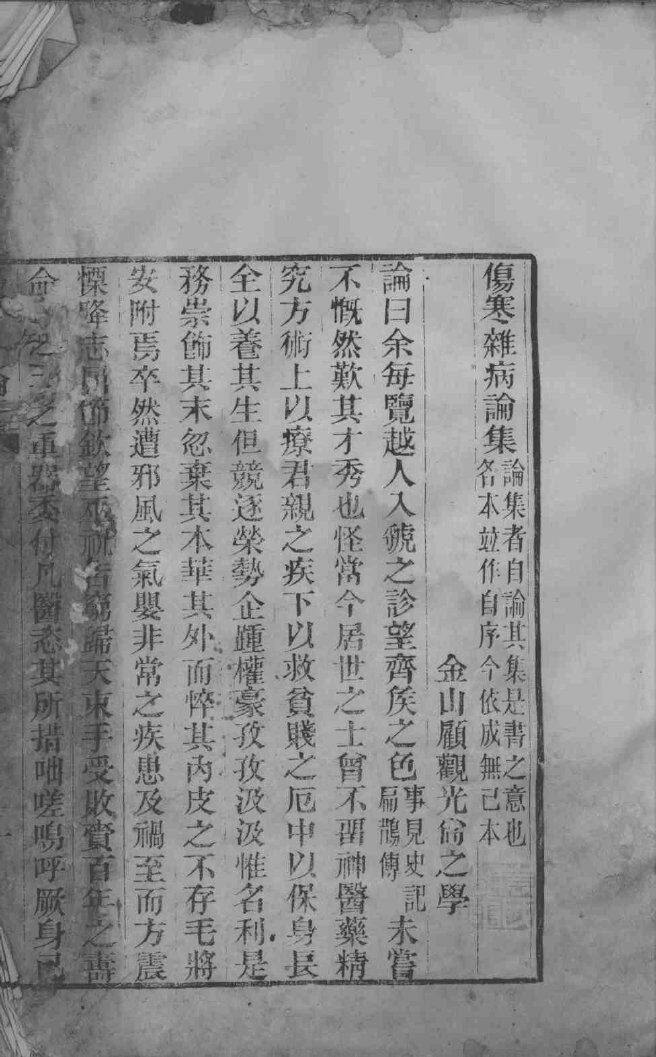 傷寒雜病論集論集者自論其集是書之意也各本竝作自序今依成無己本
金山顧觀光尙之學
論曰余每覽越人入虢之診望齊矦之色事見史記扁鵲傳未嘗
不慨然歎其才秀也怪當今居世之士曾不畱神醫藥精
究方術上以療君親之疾下以救貧賤之厄中以保身長
全以養其生但競逐榮勢企踵權豪孜孜汲汲惟名利是
務崇飾其末忽棄其本華其外而悴其內皮之不存毛將
安附焉卒然遭邪風之氣嬰非常之疾患及禍至而方震
慄降志屈節欽望巫祝告窮歸天束手受敗賷百年之壽
命之重器委付凡醫恣其所措咄嗟嗚呼厥身已